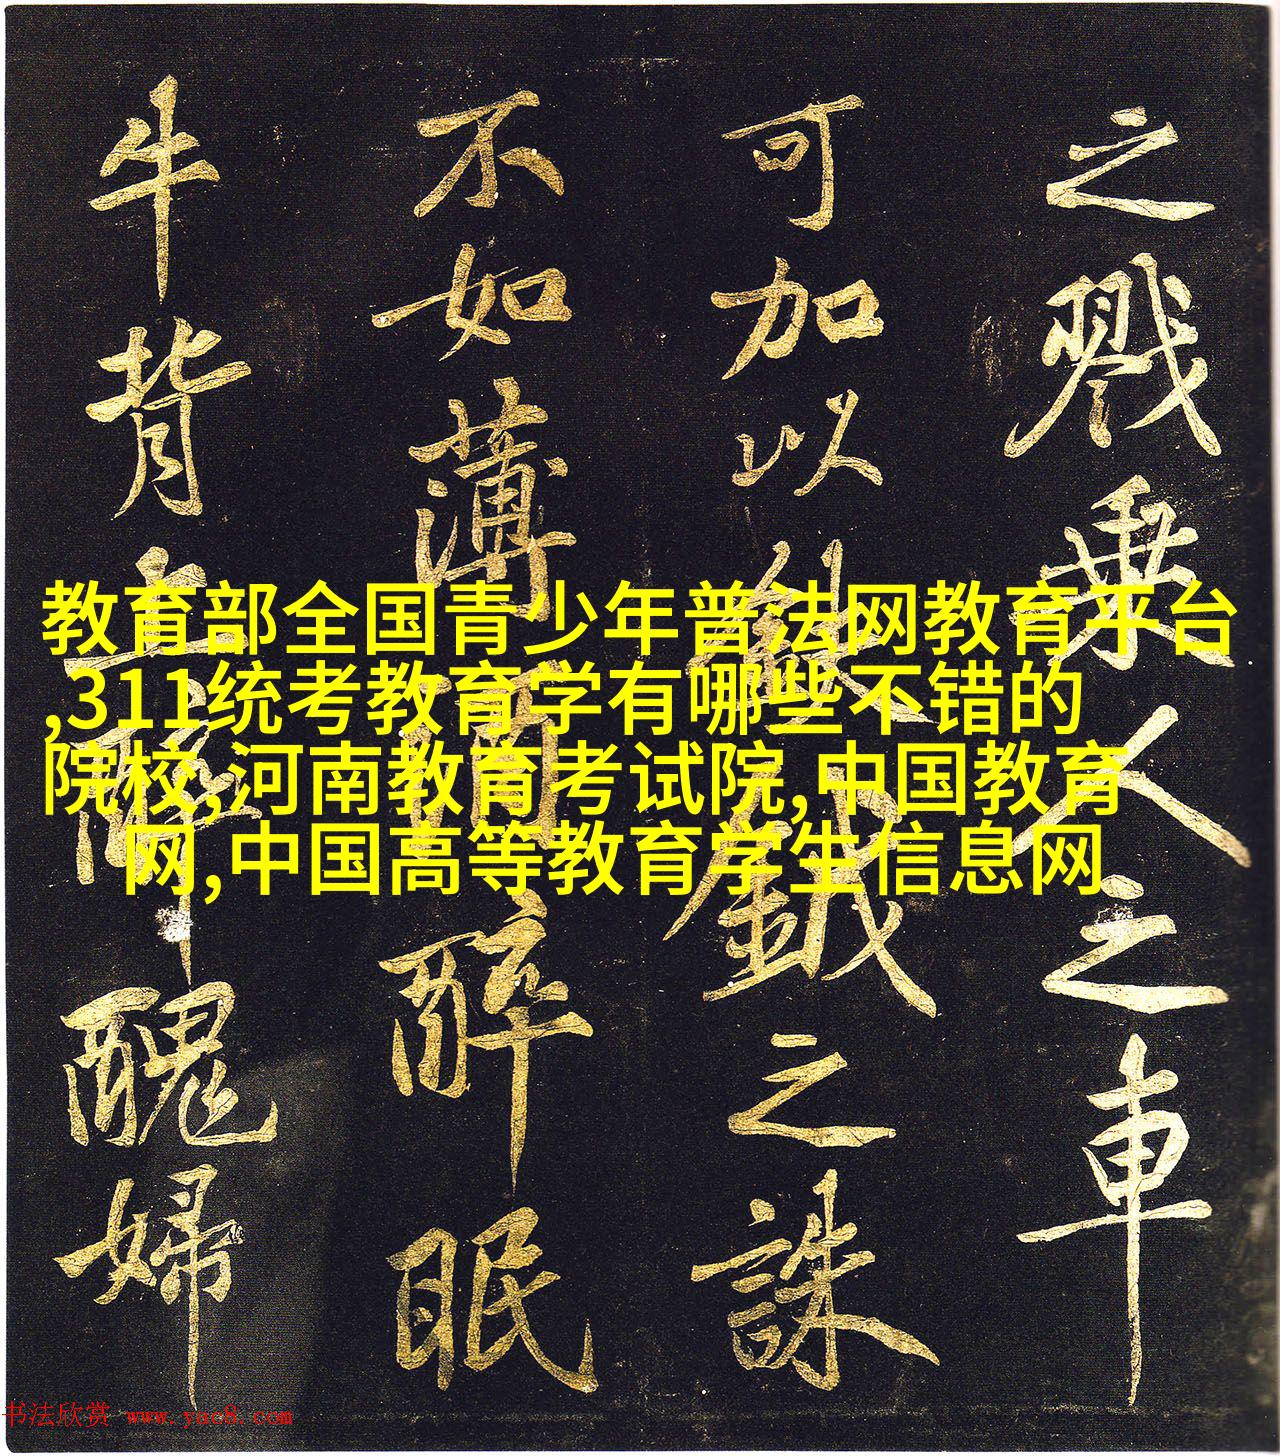 之戮乘人之車
可加以鉞之誅
不如薄酒醉眠
牛背上醜婦
教育部全国青少年普法网教育平台
,311统考教育学有哪些不错的
院校,河南教育考试院,中国教育
网,中国高等教育学生信息网
书法欣赏 www.yac8.com